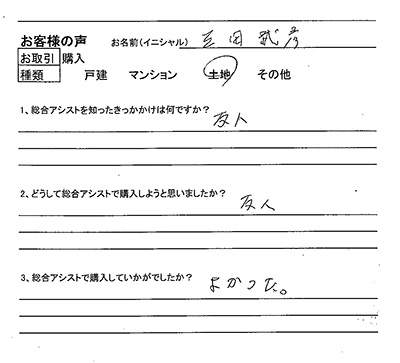 お客様の声 お名前(イニシャル) 豆田 武彦
お取引 購入
種類 戸建 マンション 土地 その他
1、総合アシストを知ったきっかかけは何ですか?
友人
2、どうして総合アシストで購入しようと思いましたか?
友人
3、総合アシストで購入していかがでしたか?
よかった。